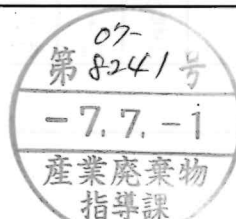 07-
第8241号
-7.7.-1
産業廃棄物
指導課